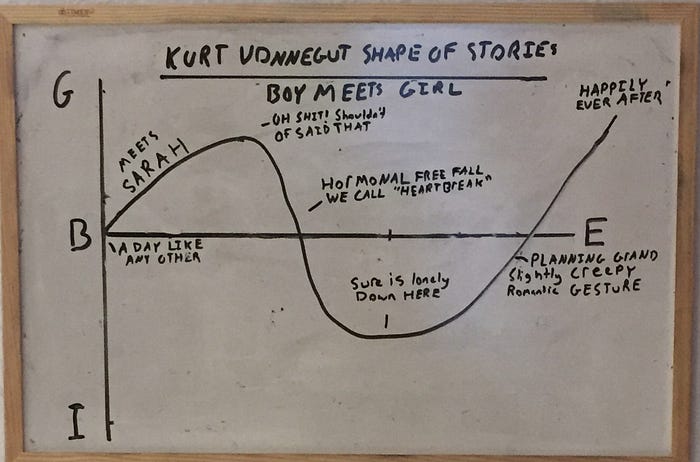 KURT VONNEGUT SHAPE OF STORIES
BOY MEETS GIRL
G
HAPPILY
EVER AFTER
- OH SHIT! Shouldn't
OF SAID THAT
MEETS
SARAH
HORMONAL FREE FALL
WE CALL "HEARTBREAK"
B
E
A DAY LIKE
ANY OTHER
PLANNING GRAND
Slightly CREEPY
Romantic GESTURE
Sure is lonely
Down HERE
I